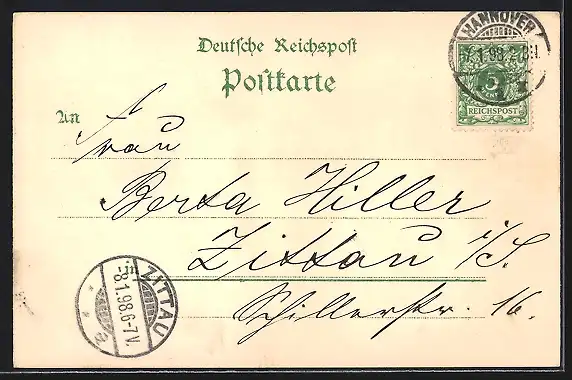 HANNOVER
Deutsche Reichspost
Postkarte
5
REICHSPOST
An Frau
Berta Hiller
Zittau i/S.
Schillerstr. 16.
ZITTAU
-8.1.98.6-7V.
a.